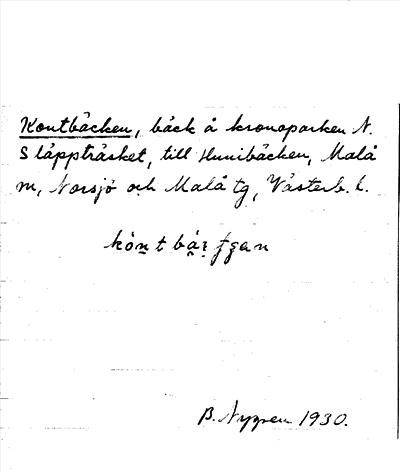 Kontbäcken, bäck å kronoparken N.
Släppträsket, till Hunibäcken, Malå
m, Norsjö och Malå tg, Västerb. l.
B. Nyppen 1930.